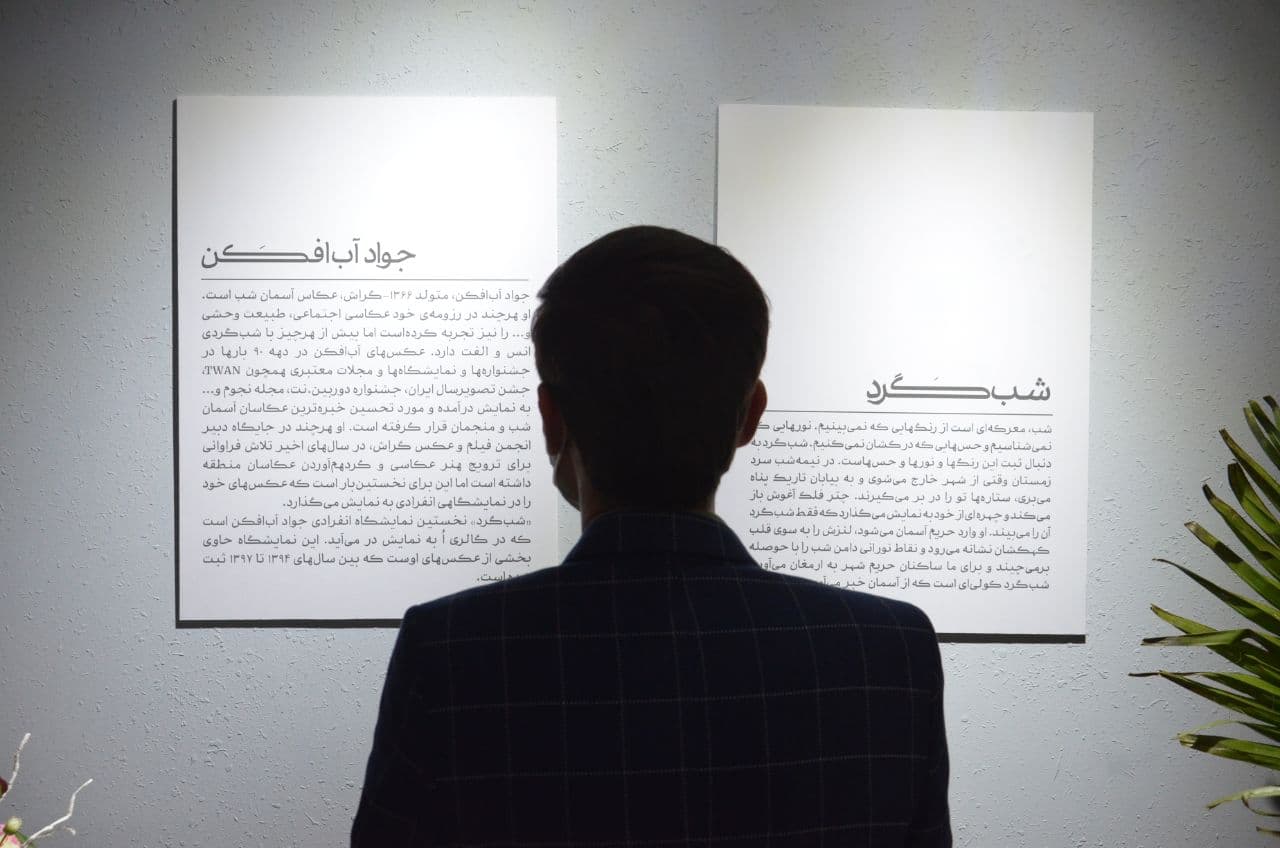 شب‌گَرد
شب، معرکه‌ای است از رنگهایی که نمی‌بینیم. نورهایی که
نمی‌شناسیم و حس‌هایی که درکشان نمی‌کنیم. شب‌گرد به
دنبال ثبت این رنگ‌ها و نورها و حس‌هاست. در نیمه‌شب سرد
زمستان وقتی از شهر خارج می‌شوی و به بیابان تاریک پناه
می‌بری، ستاره‌ها تو را در بر می‌گیرند. چتر فلک آغوش باز
می‌کند و چهره‌ای از خود به نمایش می‌گذارد که فقط شب‌گرد
آن را می‌بیند. او وارد حریم آسمان می‌شود، لنزش را به سوی قلب
کهکشان نشانه می‌رود و نقاط نورانی دامن شب را با حوصله
برمی‌چیند و برای ما ساکنان حریم شهر به ارمغان
شب‌گرد کولی‌ای است که از آسمان خبر
جواد آب‌افکَن
جواد آب‌افکن، متولد ۱۳۶۶-گراش، عکاس آسمان شب است.
او هرچند در رزومه‌ی خود عکاسی اجتماعی، طبیعت وحشی
و... را نیز تجربه کرده‌است اما بیش از هرچیز با شب‌گردی
انس و الفت دارد. عکس‌های آب‌افکن در دهه ۹۰ بارها در
جشنواره‌ها و نمایشگاه‌ها و مجلات معتبری همچون TWAN،
جشن تصویرسال ایران، جشنواره دوربین.نت، مجله نجوم و...
به نمایش درآمده و مورد تحسین خبره‌ترین عکاسان آسمان
شب و منجمان قرار گرفته است. او هرچند در جایگاه دبیر
انجمن فیلم و عکس گراش، در سال‌های اخیر تلاش فراوانی
برای ترویج هنر عکاسی و گردهم‌آوردن عکاسان منطقه
داشته است اما این برای نخستین‌بار است که عکس‌های خود
را در نمایشگاهی انفرادی به نمایش می‌گذارد.
«شب‌گرد» نخستین نمایشگاه انفرادی جواد آب‌افکن است
که در گالری اُ به نمایش در می‌آید. این نمایشگاه حاوی
بخشی از عکس‌های اوست که بین سال‌های ۱۳۹۴ تا ۱۳۹۷ ثبت
است.